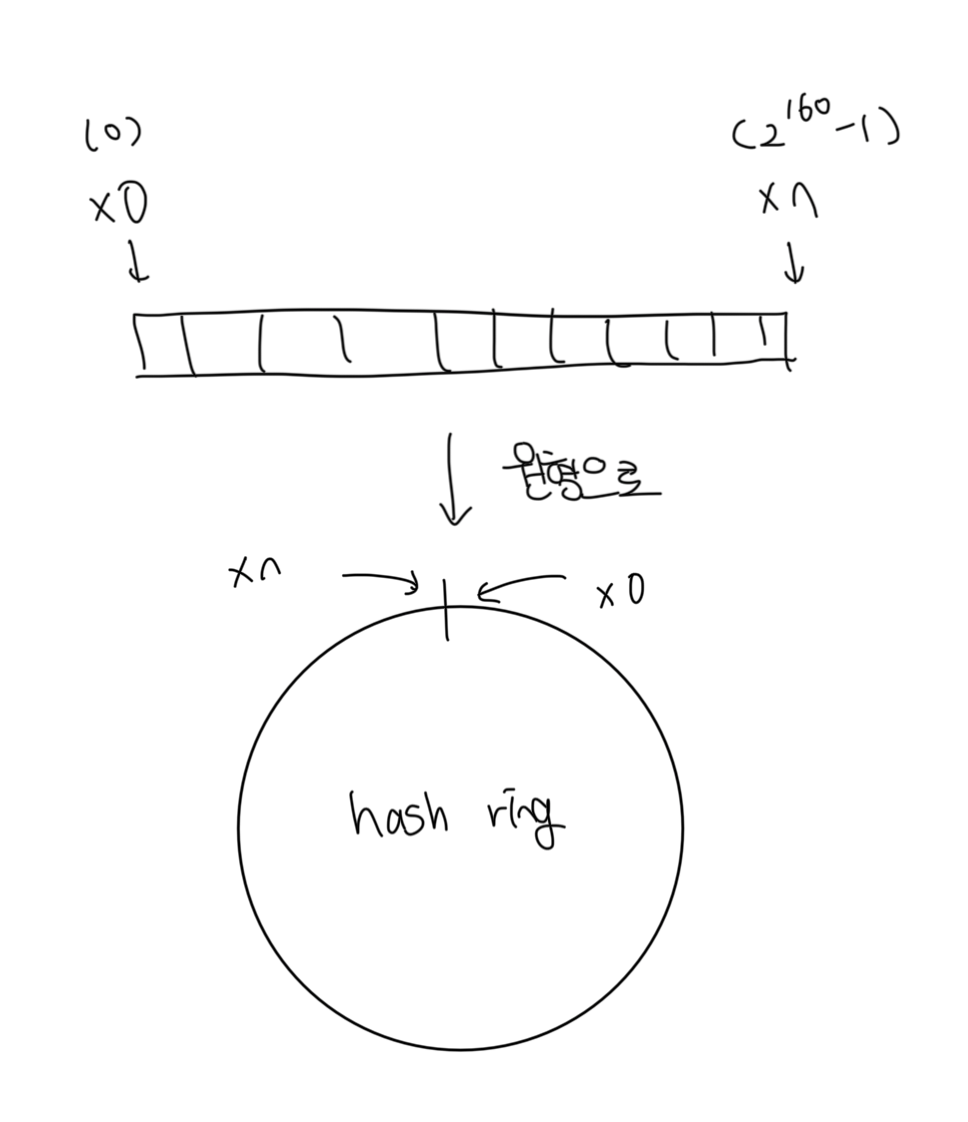 (0) (2^160-1)
x0 xn
원형으로
xn x0
hash ring